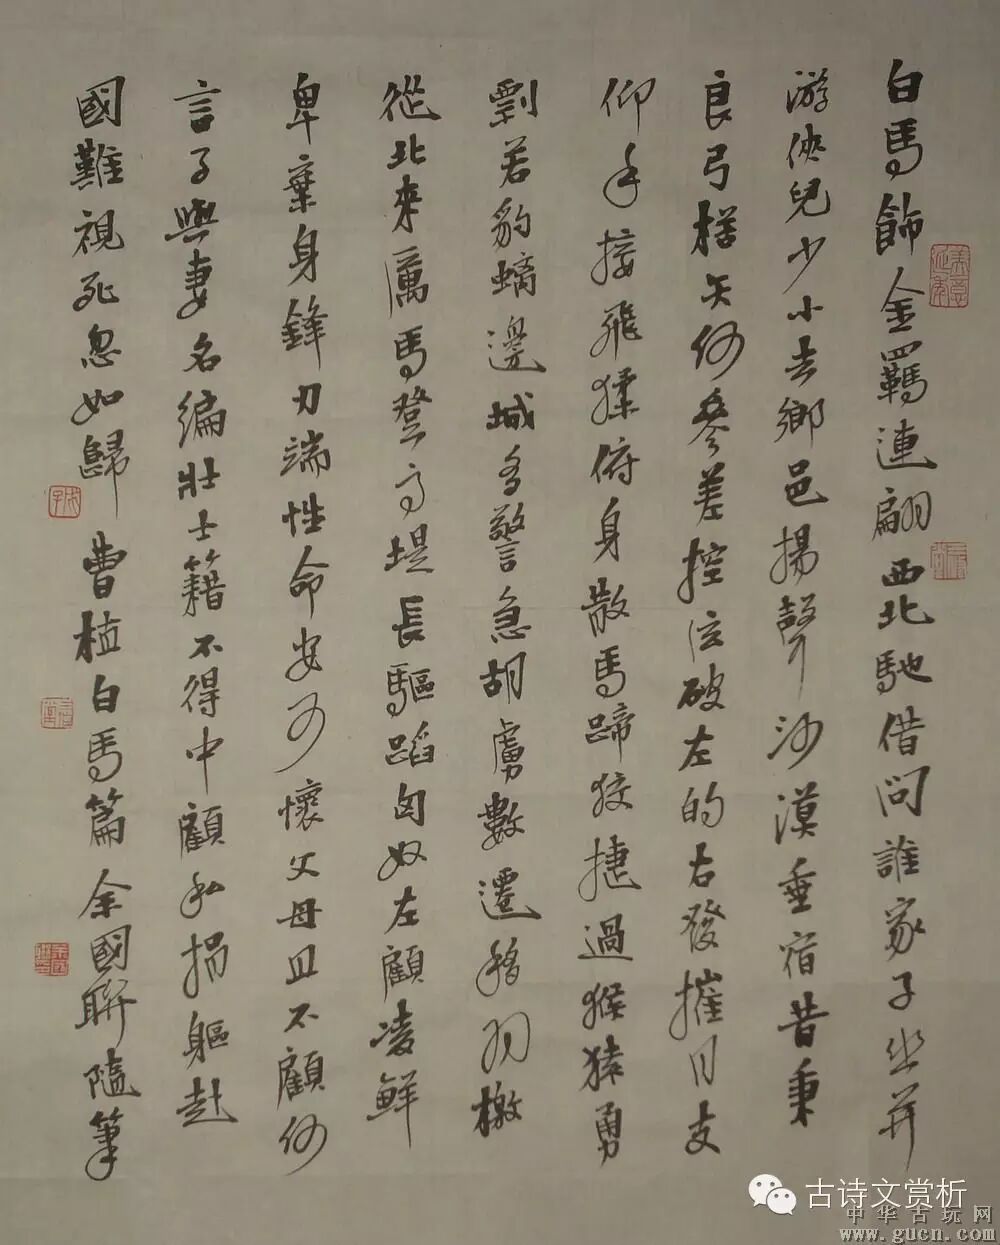 白馬飾金羈連翩西北馳借問誰家子幽并
游俠兒少小去鄉邑揚聲沙漠垂宿昔秉
良弓楛矢何參差控弦破左的右發摧月支
仰手接飛猱俯身散馬蹄狡捷過猴猿勇
剽若豹螭邊城多警急胡虜數遷移羽檄
從北來厲馬登高堤長驅蹈匈奴左顧凌鮮
卑棄身鋒刃端性命安可懷父母且不顧何
言子與妻名編壯士籍不得中顧私捐軀赴
國難視死忽如歸 曹植白馬篇余國聯隨筆
古诗文赏析
中华古玩网
www.gucn.com